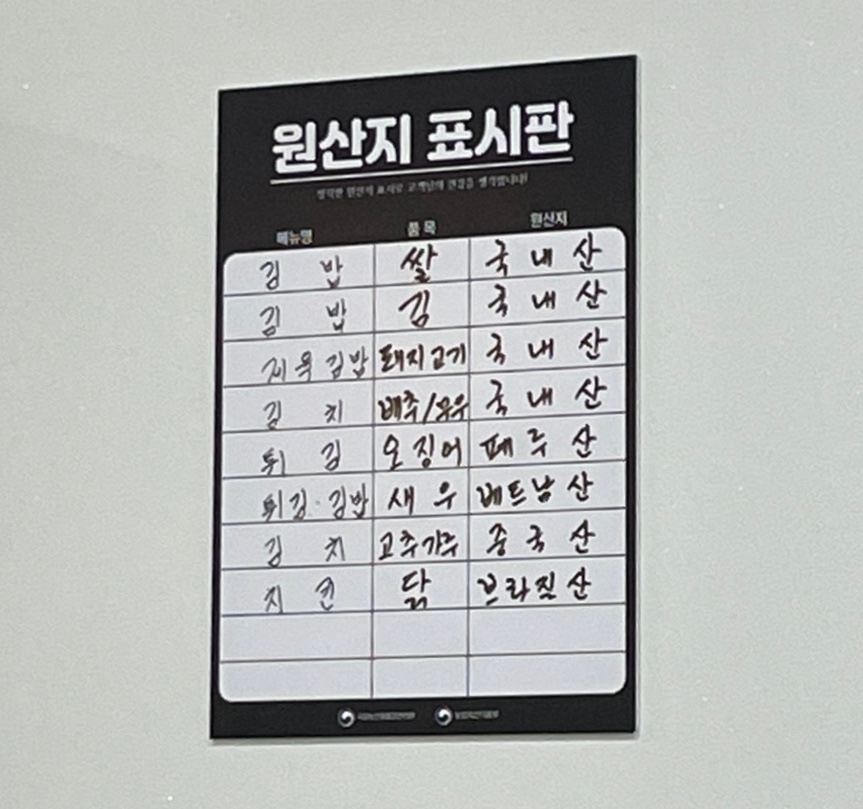 원산지 표시판
정확한 원산지 표시로 고객님의 건강을 생각합니다!
메뉴명 품목 원산지
김 밥 쌀 국 내 산
김 밥 김 국 내 산
제육김밥 돼지고기 국 내 산
김 치 배추/무우 국 내 산
튀 김 오징어 페 루 산
튀김·김밥 새 우 베트남 산
김 치 고추가루 중 국 산
치 킨 닭 브라질 산